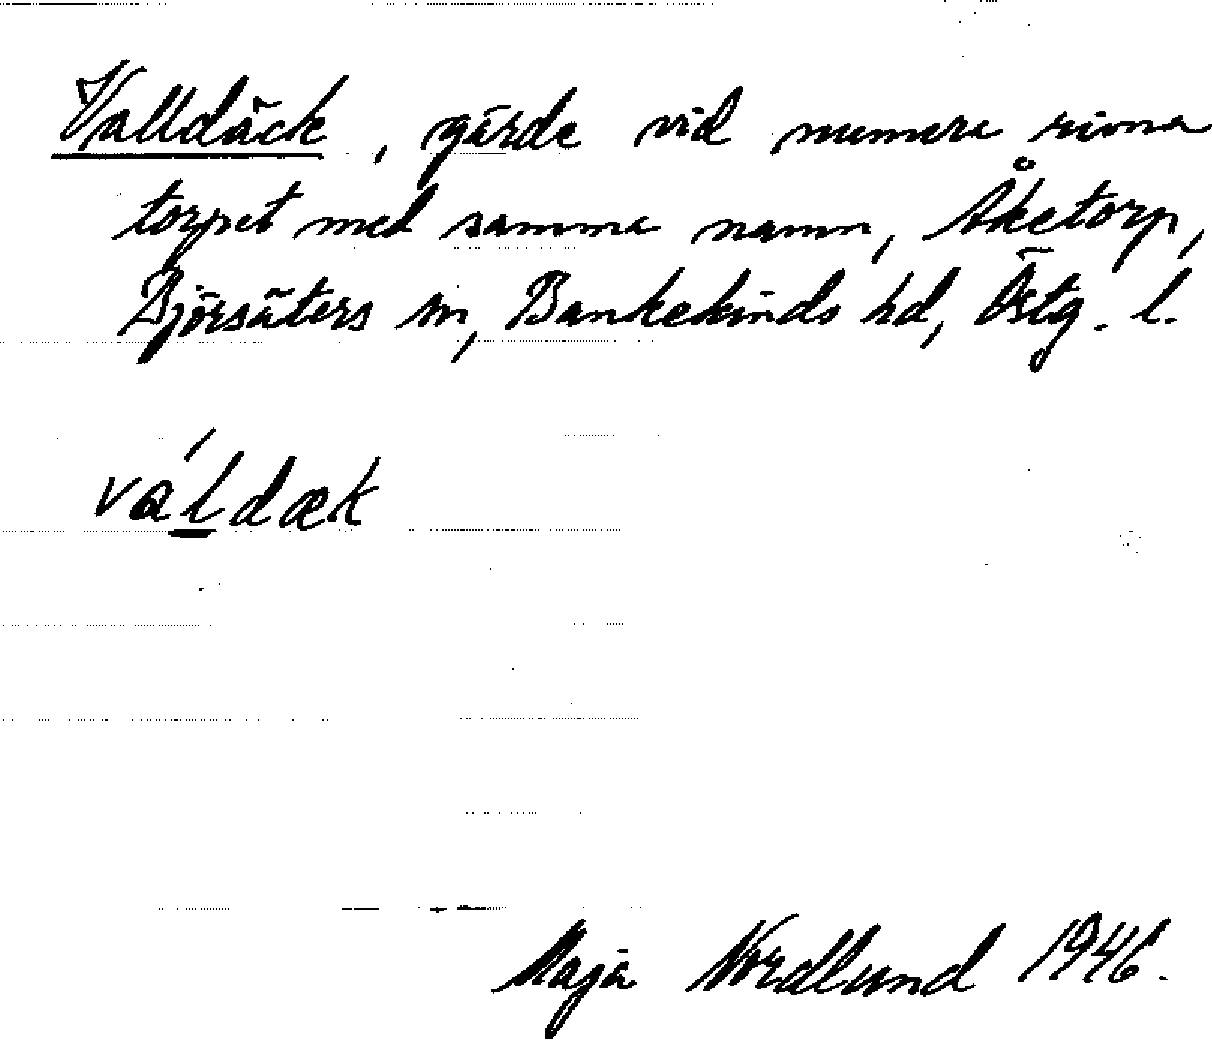 Valldäck, gärde vid numera rivna
torpet med samma namn, Åketorp,
Björsäters sn, Bankekinds hd, Östg. l.
váldæk
Maja Nordlund 1946.